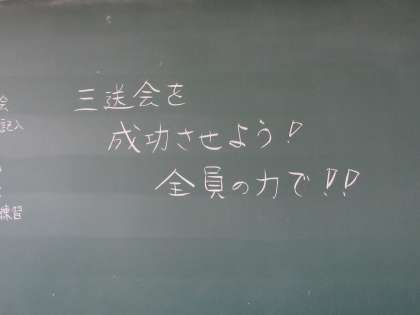 三送会を
成功させよう!
全員の力で!!
会
記入
練習